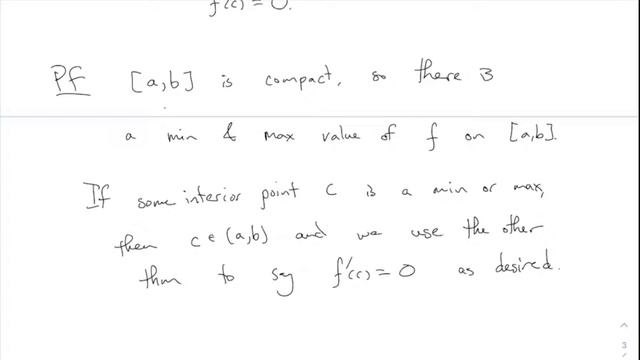 f'(c) = 0.
Pf [a,b] is compact, so there ∃
a min & max value of f on [a,b].
If some interior point c is a min or max,
then c ∈ (a,b) and we use the other
thm to say f'(c) = 0 as desired.
3